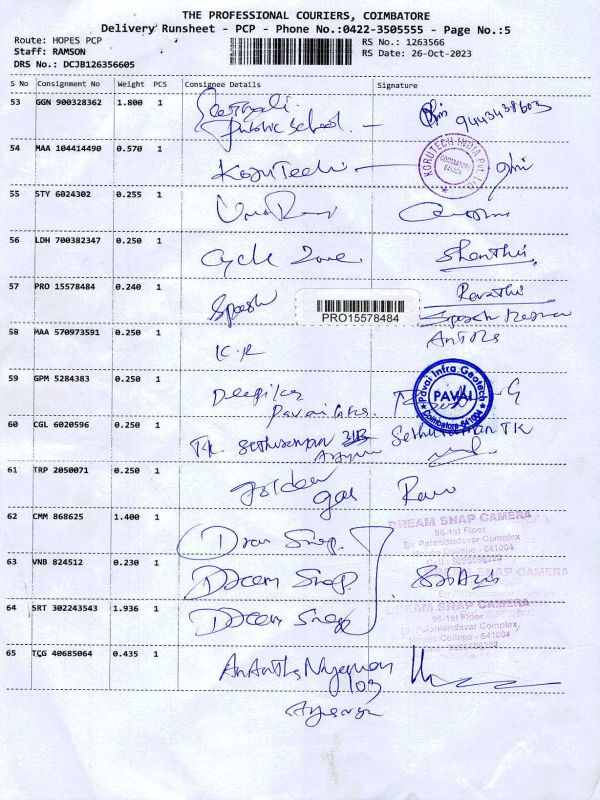 THE PROFESSIONAL COURIERS, COIMBATORE
Delivery Runsheet - PCP - Phone No.:0422-3505555 - Page No.:5
Route: HOPES PCP
Staff: RAMSON
DRS No.: DCJB126356605
RS No.: 1263566
RS Date: 26-Oct-2023
S No Consignment No Weight PCS Consignee Details Signature
53 GGN 900328362 1.800 1 Public School. 9443438603
54 MAA 104414490 0.570 1 KoruTech
KORUTECH INDIA PVT. COIMBATORE 641004
55 STY 6024302 0.255 1
56 LDH 700382347 0.250 1 Cycle Zone. Shanthi.
57 PRO 15578484 0.240 1 Spash Revathi
PRO15578484
58 MAA 570973591 0.250 1 K.R
59 GPM 5284383 0.250 1 Deepika
Pavai Infra.
Pavai Infra Geotech PAVAI Coimbatore-641004
60 CGL 6020596 0.250 1 TK Sethuraman 31B Sethuraman TK
61 TRP 2050071 0.250 1 Golden gas Ravi
62 CMM 868625 1.400 1 Dream Snap.
DREAM SNAP CAMERA
96-1st Floor
Sir Palaniandavar Complex
College - 641004
63 VNB 824512 0.230 1 Dream Snap
DREAM SNAP CAMERA
64 SRT 302243543 1.936 1 Dream Snap
DREAM SNAP CAMERA
96-1st Floor
Sir Palaniandavar Complex
College - 641004
65 TCG 40685064 0.435 1
103